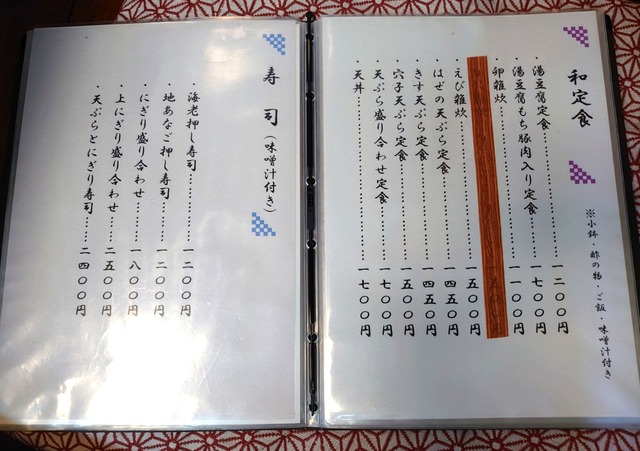 ※小鉢・酢の物・ご飯・味噌汁付き
和定食
・湯豆腐定食…………一二〇〇円
・湯豆腐もち豚肉入り定食……一七〇〇円
・卵雑炊…………一一〇〇円
・えび雑炊…………一五〇〇円
・はぜの天ぷら定食…………一四五〇円
・きす天ぷら定食…………一四五〇円
・穴子天ぷら定食…………一五〇〇円
・天ぷら盛り合わせ定食……一七〇〇円
・天丼…………一七〇〇円
寿司（味噌汁付き）
・海老押し寿司…………一二〇〇円
・地あなご押し寿司………一二〇〇円
・にぎり盛り合わせ………一八〇〇円
・上にぎり盛り合わせ……二五〇〇円
・天ぷらとにぎり寿司……二四〇〇円